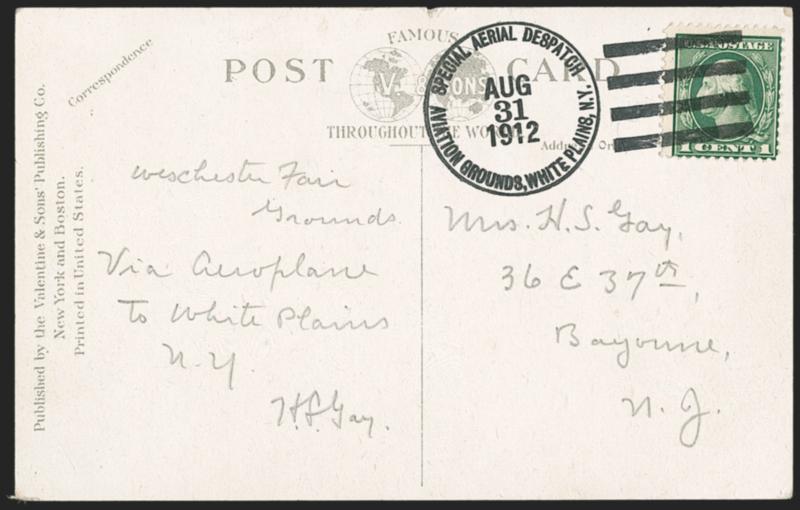 Published by the Valentine & Sons' Publishing Co.
New York and Boston.
Printed in United States.
Correspondence
FAMOUS
POST CARD
V. & SONS
THROUGHOUT THE WORLD
SPECIAL AERIAL DESPATCH
AUG
31
1912
AVIATION GROUNDS, WHITE PLAINS, N.Y.
U.S. POSTAGE
1 CENT 1
Weschester Fair
Grounds.
Via Aeroplane
To White Plains
N.Y.
H.S. Gay.
Mrs. H. S. Gay,
36 E 37th,
Bayonne,
N. J.